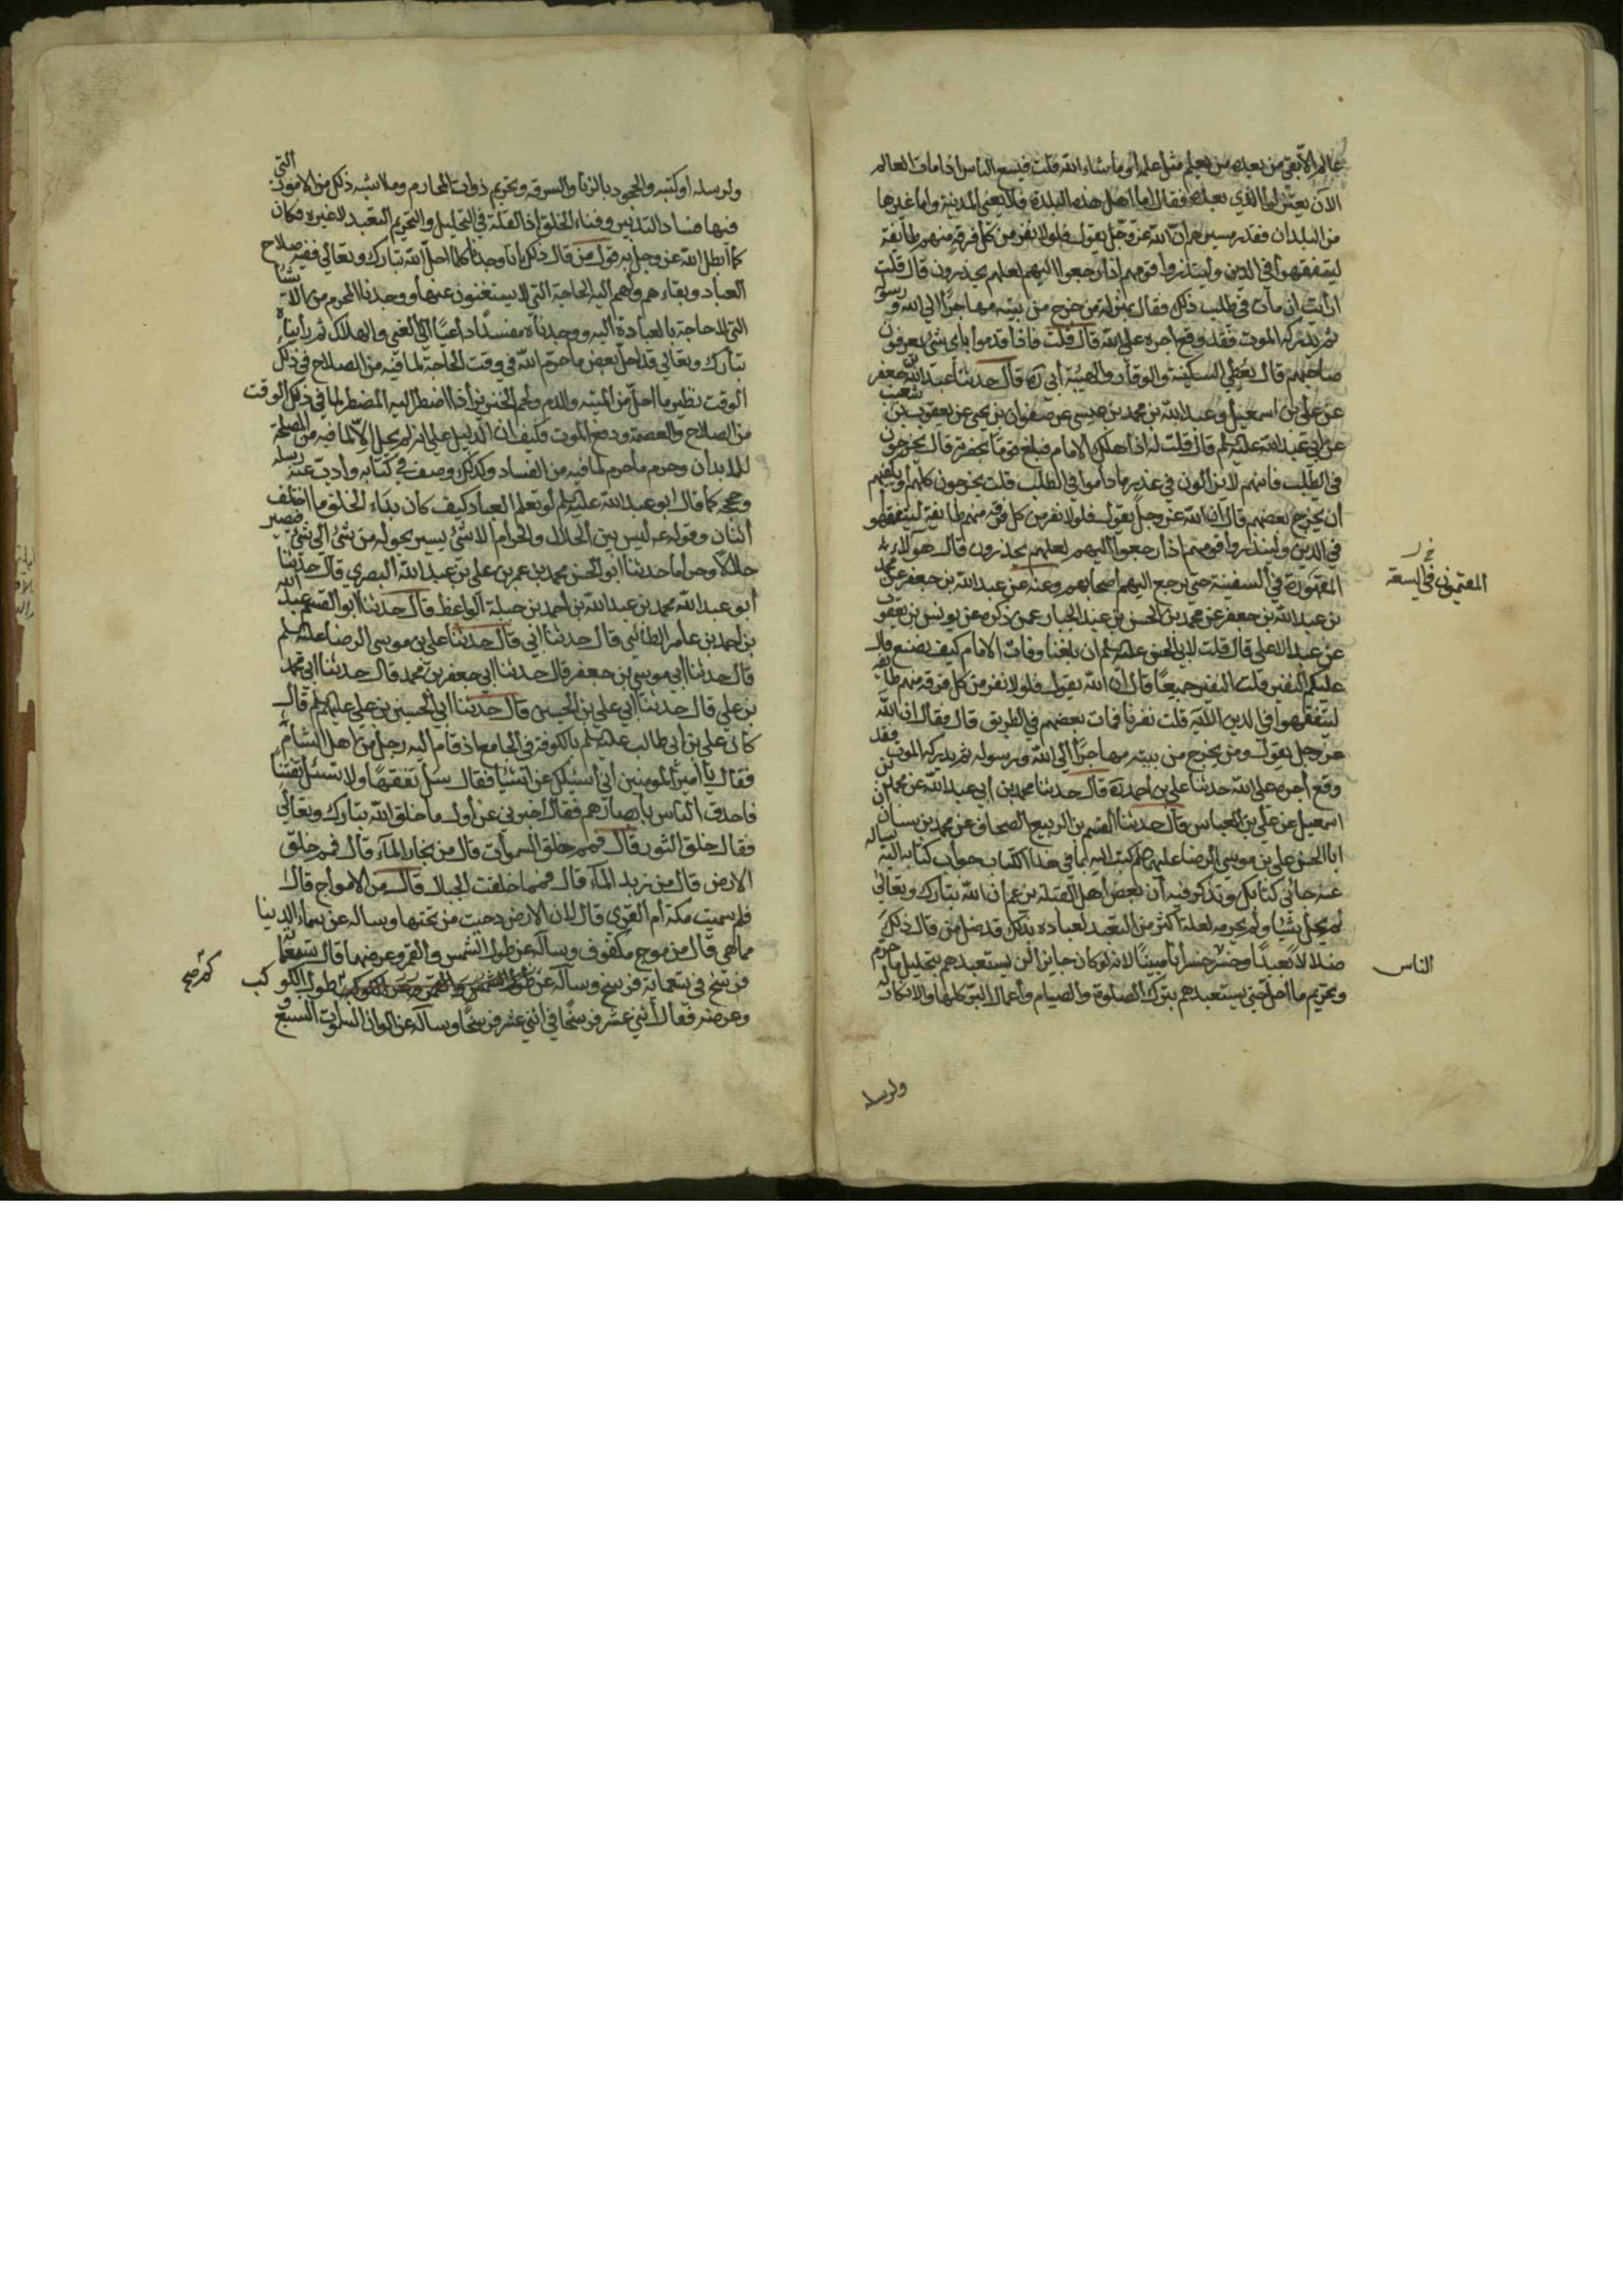 عالم الا بقى من بعده من يعلم مثل علمه او ما شاء الله قلت فيسع الناس اذا مات العالم
الا يعرفوا الذي بعده فقال اما اهل هذه البلدة فلا يعني المدينة واما غيرها
من البلدان فبقدر مسيرهم ان الله عز وجل يقول فلولا نفر من كل فرقة منهم طايفة
ليتفقهوا في الدين ولينذروا قومهم اذا رجعوا اليهم لعلهم يحذرون قال قلت
ارايت ان مات في طلب ذلك فقال بمنزلة من خرج من بيته مهاجرا الى الله ورسوله
ثم يدركه الموت فقد وقع اجره على الله قال قلت فاذا قدموا باي شئ يعرفون
صاحبهم قال يعطي السكينة والوقار والهيبة ابي ره قال حدثنا عبد الله بن جعفر
عن علي بن اسمعيل وعبد الله بن محمد بن عيسى عن صفوان بن يحيى عن يعقوب بن شعيب
عن ابي عبد الله عليه السلم قال قلت له اذا هلك الامام فبلغ قوما بحضرته قال يخرجون
في الطلب فانهم لا يزالون في عذر ما داموا في الطلب قلت يخرجون كلهم او يكفيهم
ان يخرج بعضهم قال ان الله عز وجل يقول فلولا نفر من كل فرقة منهم طايفة ليتفقهوا
في الدين ولينذروا قومهم اذا رجعوا اليهم لعلهم يحذرون قال هولاء
المقيمون في السعة
في السفينة حتى يرجع اليهم اصحابهم وعنه عن عبد الله بن جعفر عن محمد
بن عبد الله بن جعفر عن محمد بن الحسن بن عبد الجبار عمن ذكره عن يونس بن يعقوب
عن عبد الاعلى قال قلت لابي الحسن عليه السلم ان بلغنا وفات الامام كيف نصنع قال
عليكم النفير قلت النفير جميعا قال ان الله يقول فلولا نفر من كل فرقة منهم طايفة
ليتفقهوا في الدين الاية قلت نفرنا فمات بعضهم في الطريق قال فقال ان الله
عز وجل يقول ومن يخرج من بيته مهاجرا الى الله ورسوله ثم يدركه الموت فقد
وقع اجره على الله حدثنا علي بن احمد ره قال حدثنا محمد بن ابي عبد الله عن محمد بن
اسمعيل عن علي بن العباس قال حدثنا القسم بن الربيع الصحاف عن محمد بن سنان ان
ابا الحسن علي بن موسى الرضا عليهم السلم كتب اليه بما في هذا الكتاب جواب كتابه اليه يساله
عنه جائني كتابك وتذكر فيه ان بعض اهل القبلة يزعم ان الله تبارك وتعالى
لم يحل شيئا ولم يحرمه لعلة اكثر من التعبد لعباده بذلك قد ضل من قال ذلك
ضلالا بعيدا وخسر خسرانا مبينا لانه لو كان جايز ان يستعبدهم بتحليل ما حرم
الناس
وتحريم ما احل حتى يستعبدهم بترك الصلوة والصيام واعمال البر كلها والانكار له
ولرسله
ولرسله او كتبه والجحود بالزنا والسرقة وتحريم ذوات المحارم وما اشبه ذلك من الامور التي
فيها فساد التدبير وفناء الخلق اذ العلة في التحليل والتحريم التعبد لا غيره فكان
كما ابطل الله عز وجل به قول من قال ذلك انا وجدنا كلما احل الله تبارك وتعالى ففيه صلاح
العباد وبقاءهم ولهم اليه الحاجة التي لا يستغنون عنها ووجدنا المحرم من الاشياء
التي لا حاجة بالعباد اليه ووجدناه مفسدا داعيا الى الفنى والهلاك ثم رايناه
تبارك وتعالى قد احل بعض ما حرم الله في وقت الحاجة لما فيه من الصلاح في ذلك
الوقت نظير ما احل من الميتة والدم ولحم الخنزير اذا اضطر اليه المضطر لما في ذلك الوقت
من الصلاح والعصمة ودفع الموت فكيف ان الدليل على انه لم يحل الا لما فيه من المصلحة
للابدان وحرم ما حرم لما فيه من الفساد وكذلك وصف في كتابه وادت عنه رسله
وحججه كما قال ابو عبد الله عليه السلم لو تعلم العباد كيف كان بدء الخلق ما اختلف
اثنان وقوله عه ليس بين الحلال والحرام الا شئ يسير يحوله من شئ الى شئ فيصير
حلالا وحراما حدثنا ابو الحسن محمد بن عمر بن علي بن عبد الله البصري قال حدثنا
ابو عبد الله محمد بن عبد الله بن احمد بن جبلة الواعظ قال حدثنا ابو القسم عبد الله
بن احمد بن عامر الطائي قال حدثنا ابي قال حدثنا علي بن موسى الرضا عليه السلم
قال حدثنا ابي موسى بن جعفر قال حدثنا ابي جعفر بن محمد قال حدثنا ابي محمد
بن علي قال حدثنا ابي علي بن الحسين قال حدثنا ابي الحسين بن علي عليهم السلم قال
كان علي بن ابي طالب عليه السلم بالكوفة في الجامع اذ قام اليه رجل من اهل الشام
فقال يا امير المومنين اني اسئلك عن اشيا فقال سل تفقها ولا تسئل تعنتا
فاحدق الناس بابصارهم فقال اخبرني عن اول ما خلق الله تبارك وتعالى
فقال خلق النور قال فمم خلق السموات قال من بخار الماء قال فمم خلق
الارض قال من زبد الماء قال فمما خلقت الجبال قال من الامواج قال
فلم سميت مكة ام القرى قال لان الارض دحيت من تحتها وساله عن سماء الدنيا
مما هي قال من موج مكفوف وساله عن طول الشمس والقمر وعرضهما قال تسعماية
فرسخ في تسعماية فرسخ وساله عن طول الكوكب
وعرضه فقال اثني عشر فرسخا في اثني عشر فرسخا وساله عن الوان السموات السبع